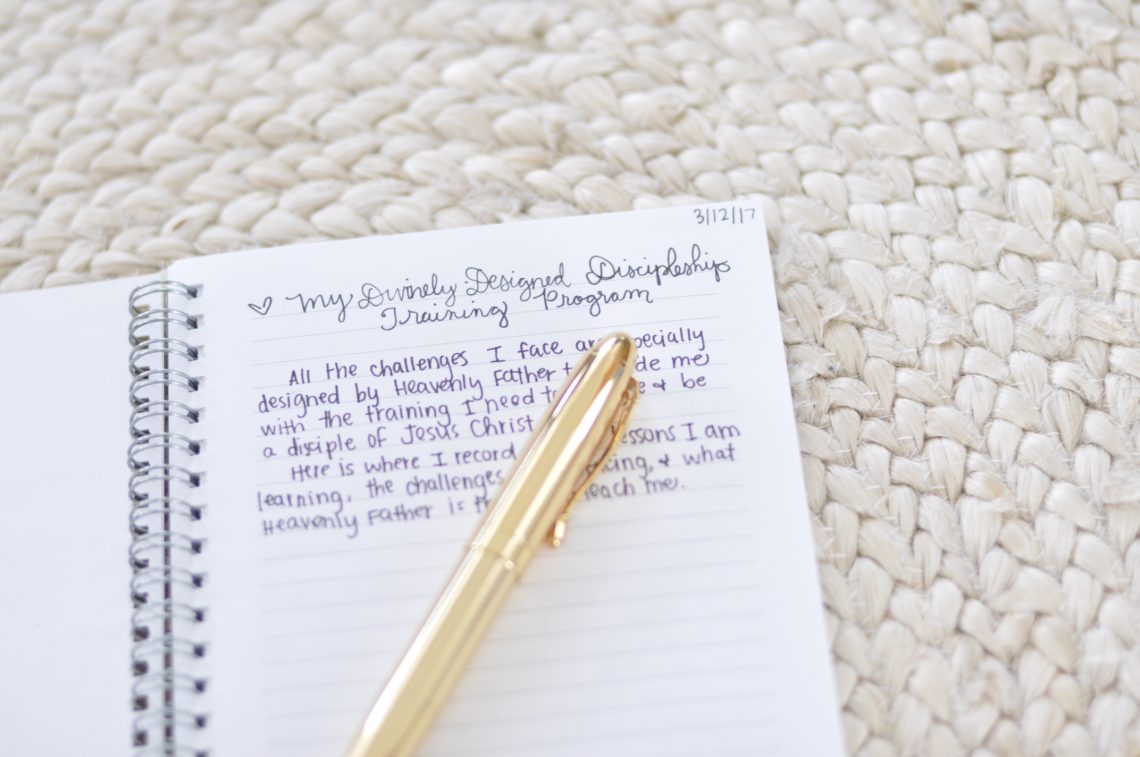 3/12/17
♡ My Divinely Designed Discipleship
Training Program
All the challenges I face are specially
designed by Heavenly Father me
with the training I need & be
a disciple of Jesus Christ
Here is where I record lessons I am
learning, the challenges & what
Heavenly Father is teach me.